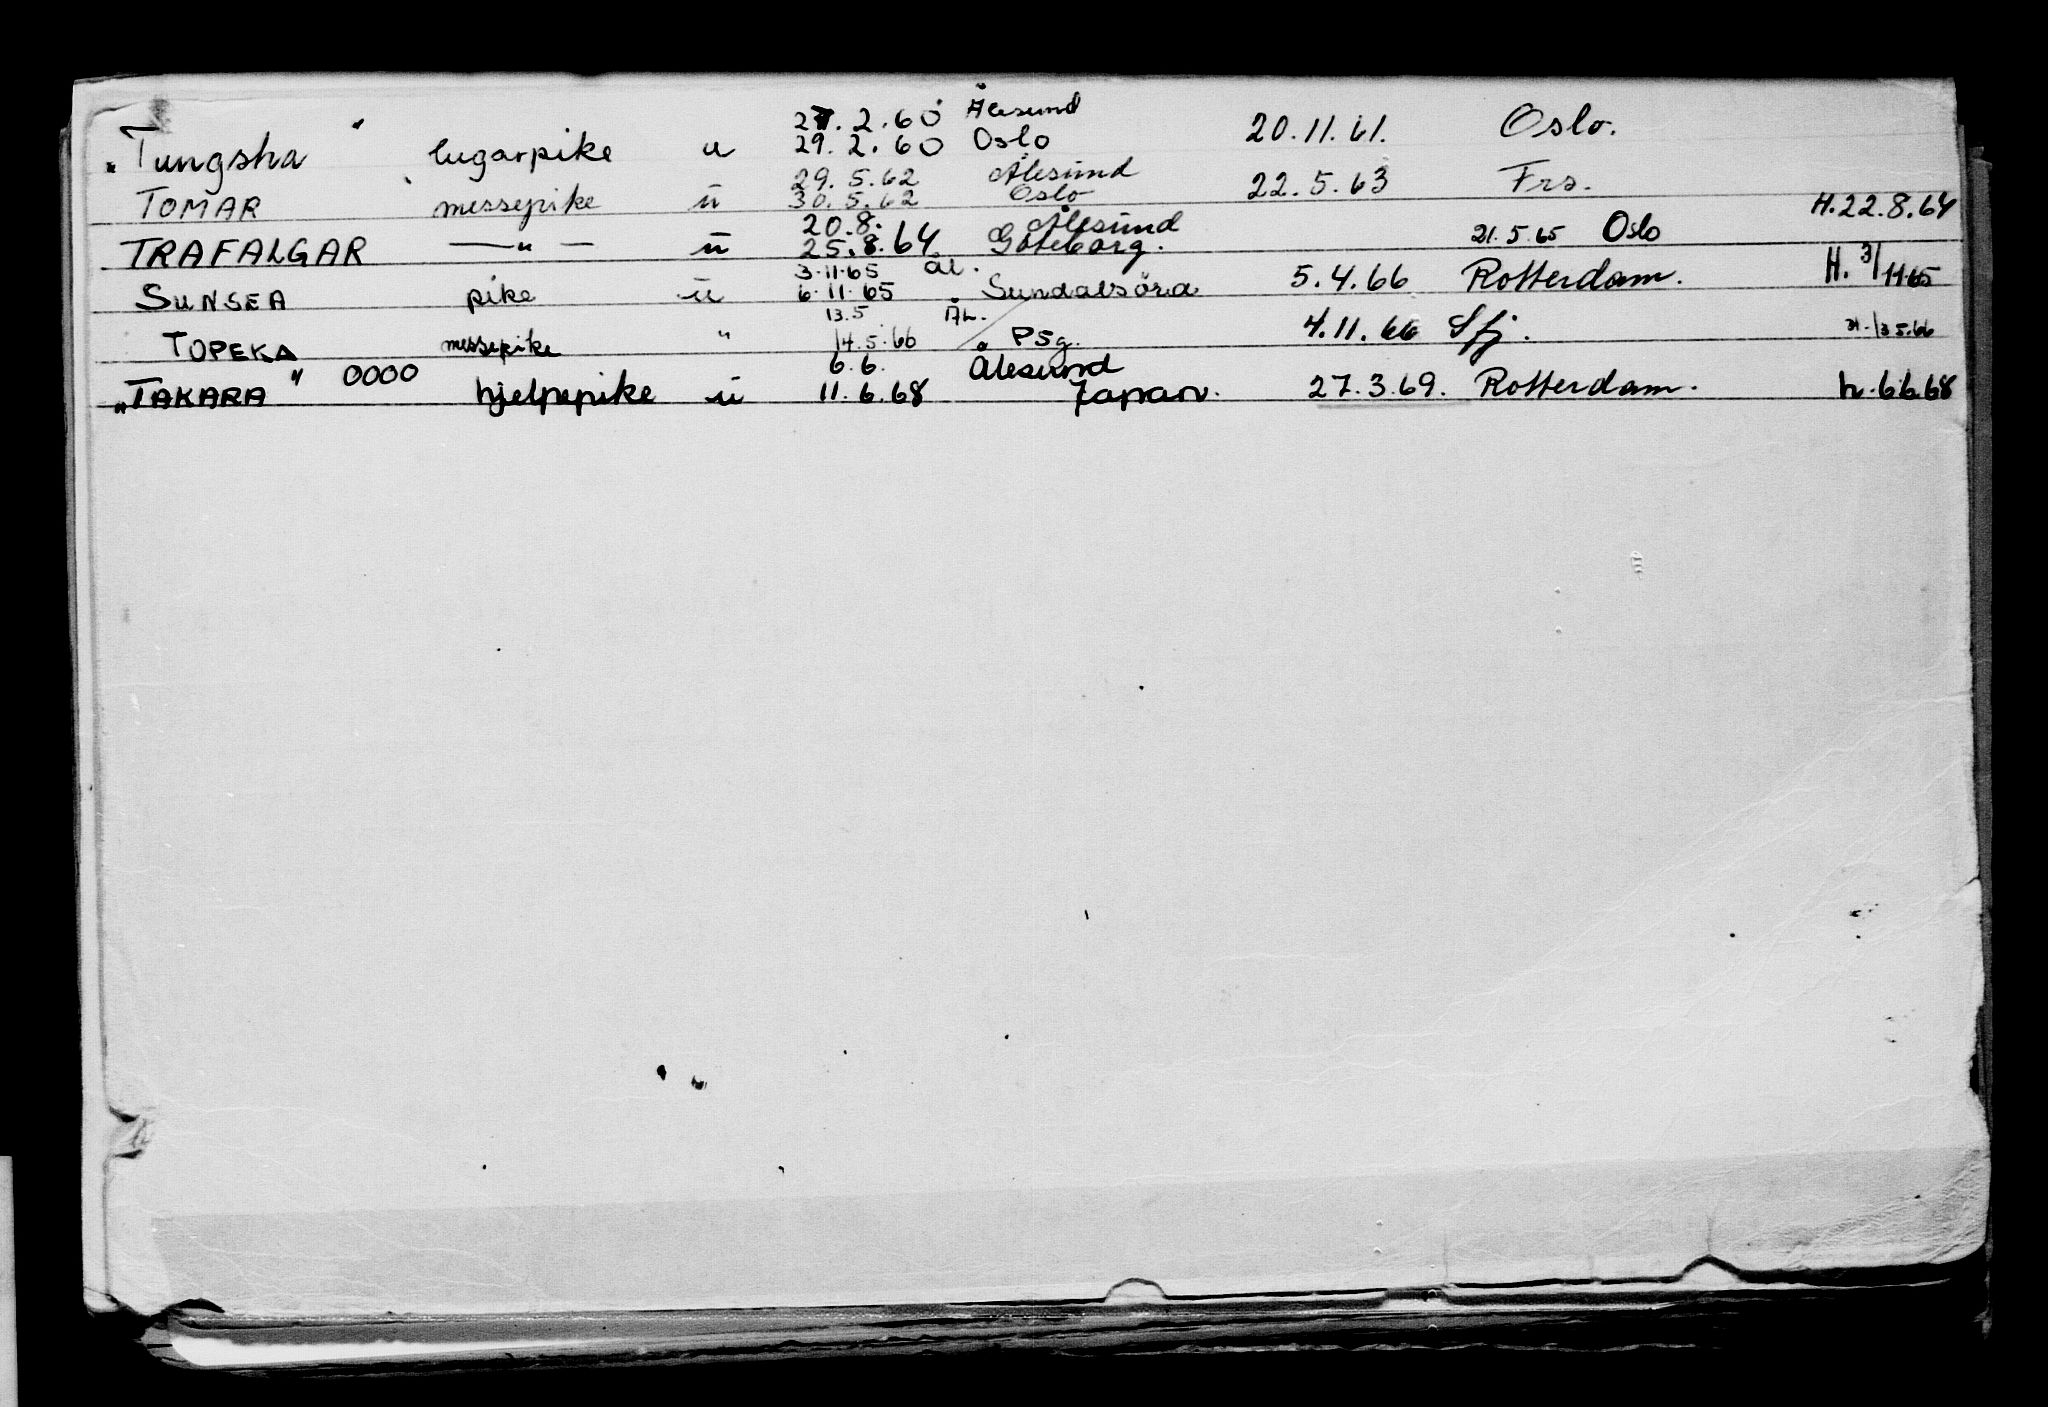 27.2.60 Ålesund
"Tungsha" lugarpike u 29.2.60 Oslo 20.11.61. Oslo.
29.5.62 Ålesund
TOMAR messepike u 30.5.62 Oslo 22.5.63 Frs. H.22.8.64
20.8. Ålesund
TRAFALGAR —"— u 25.8.64 Göteborg. 21.5.65 Oslo
3.11.65 Ål.
SUNSEA pike u 6.11.65 Sundalsöra 5.4.66 Rotterdam. H. 3/11.65
13.5 ÅL.
TOPEKA messepike " 14.5.66 PSg. 4.11.66 Sfj.
6.6. Ålesund
"TAKARA" 0000 hjelpepike u 11.6.68 Japan. 27.3.69. Rotterdam. h.6.6.68